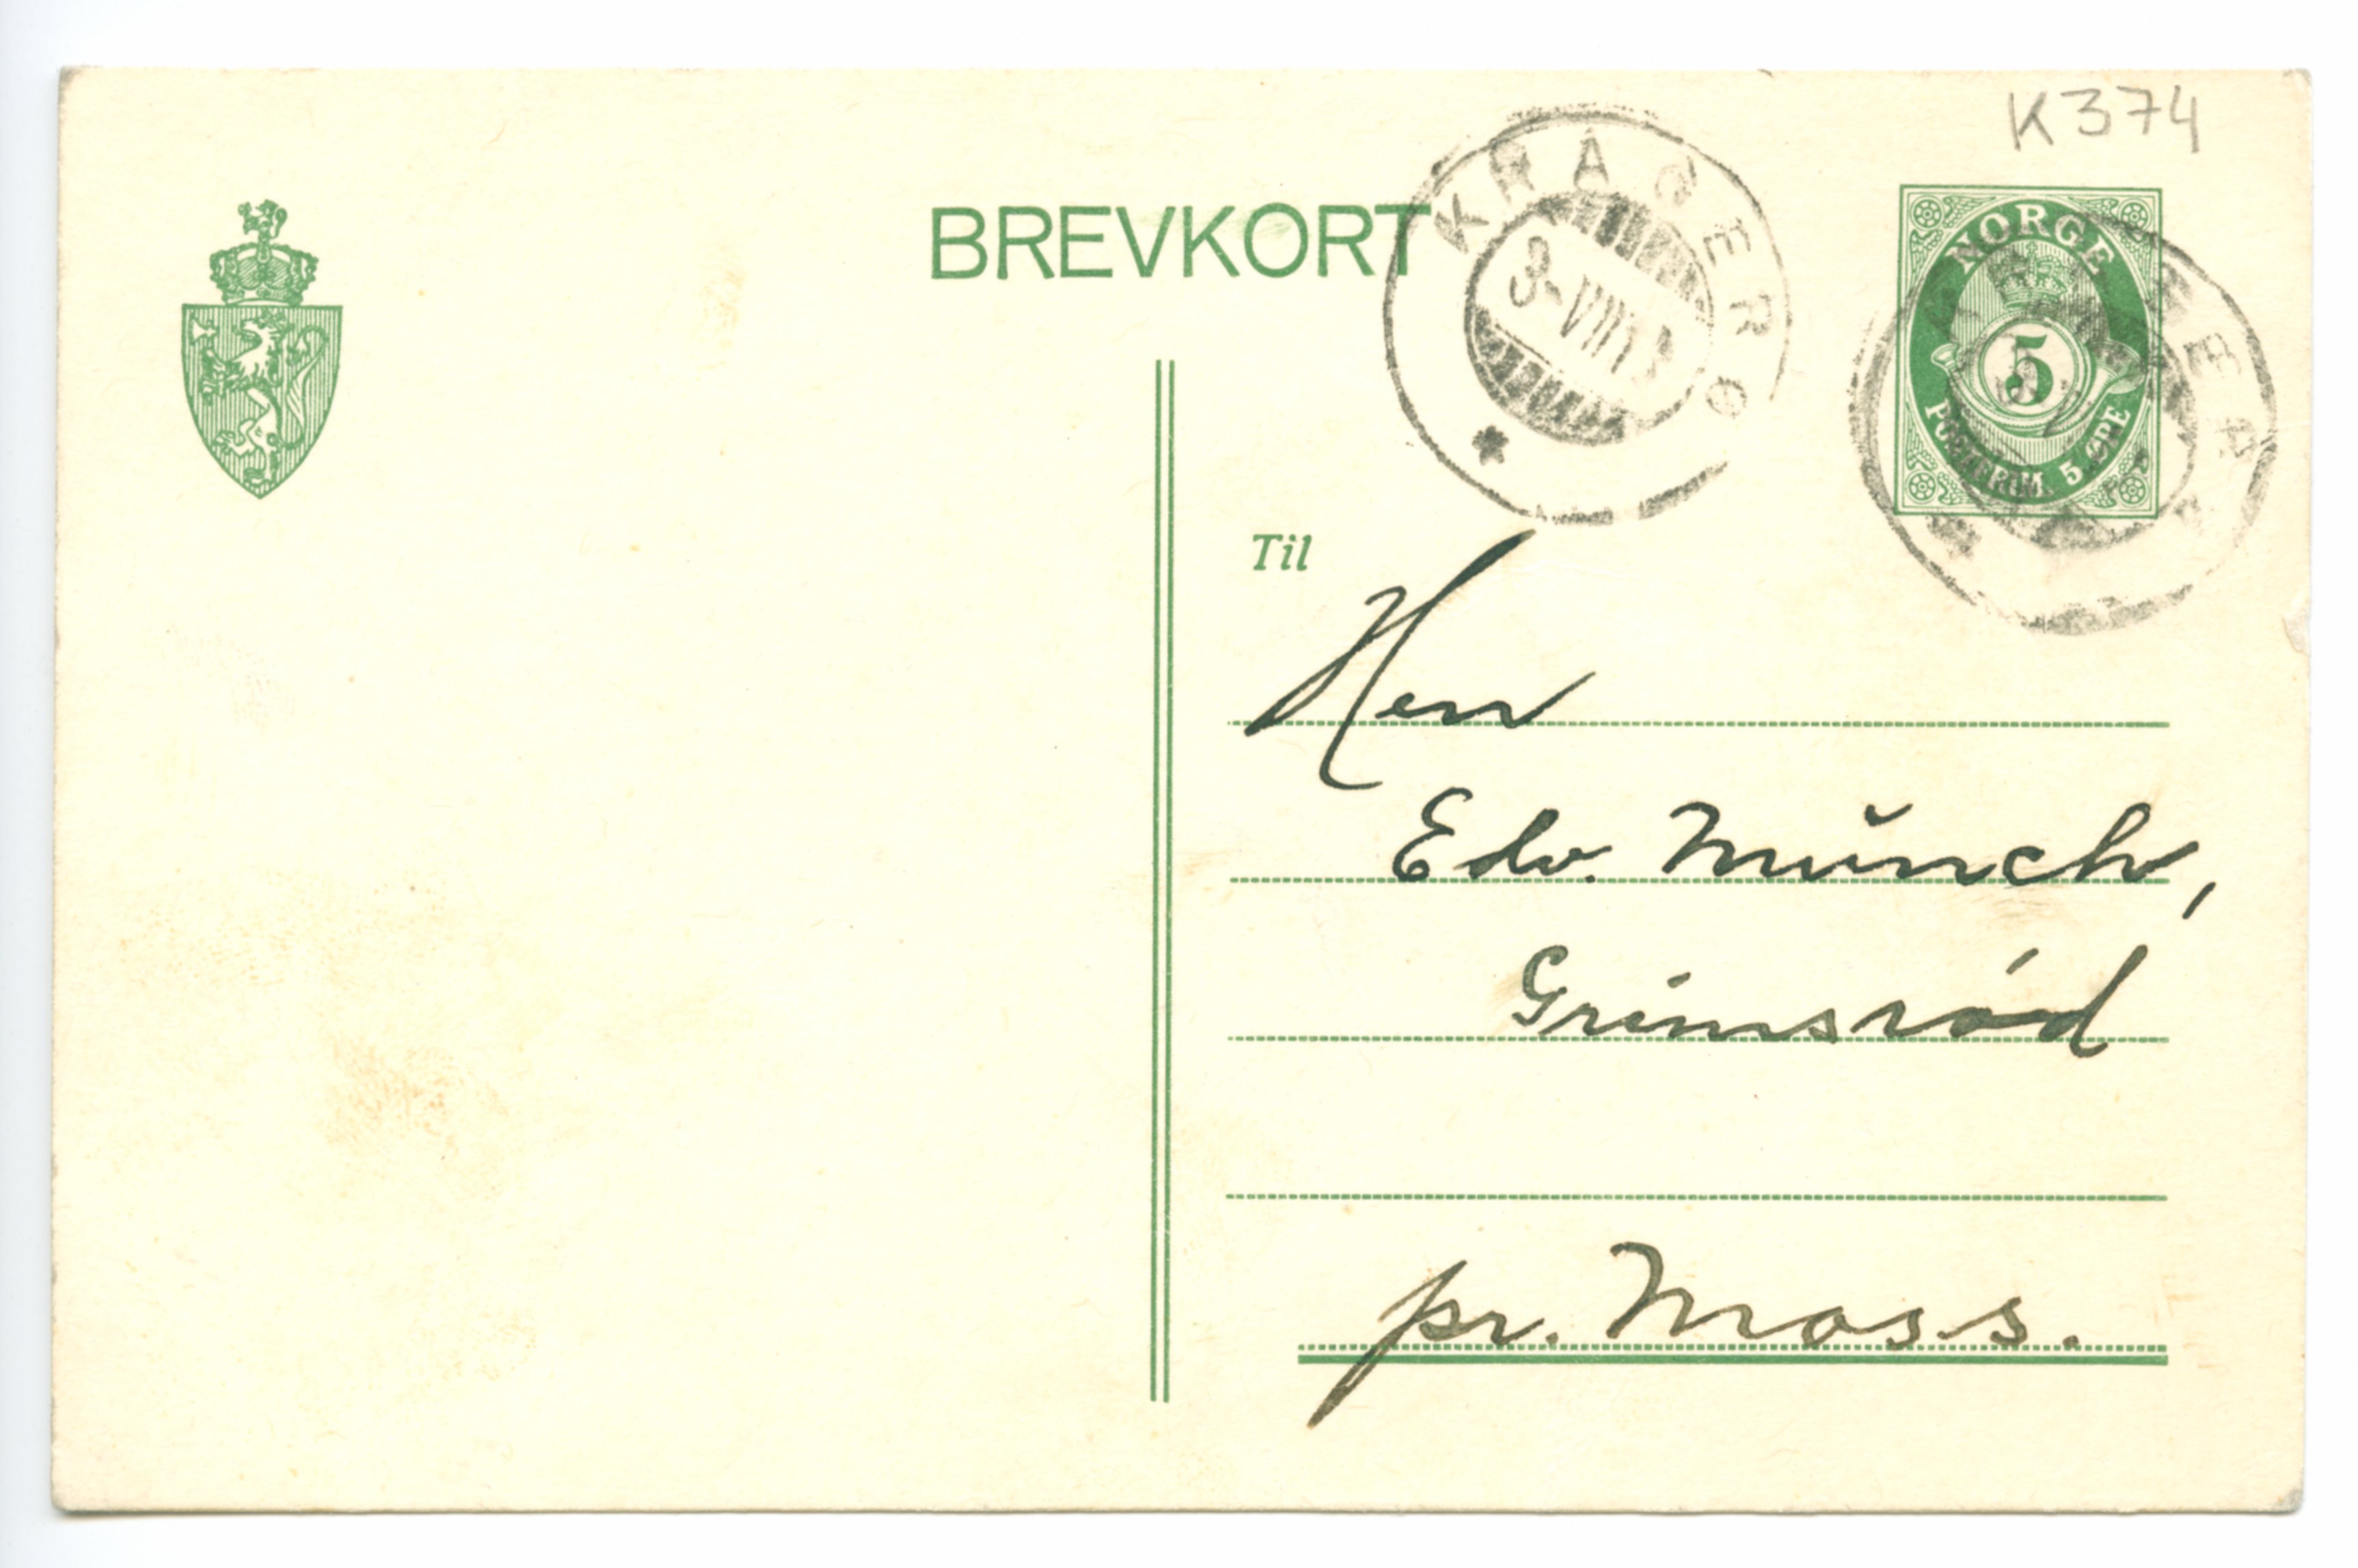 K374
BREVKORT
KRAGERØ
3-VIII13
NORGE
5
POSTFRIM. 5 ØRE
Til
Herr
Edv. Münch,
Grimsród
pr. Moss.